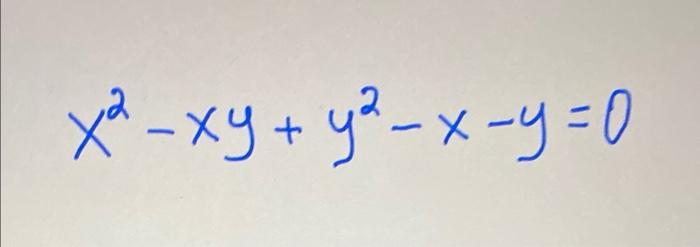 x² - xy + y² - x - y = 0